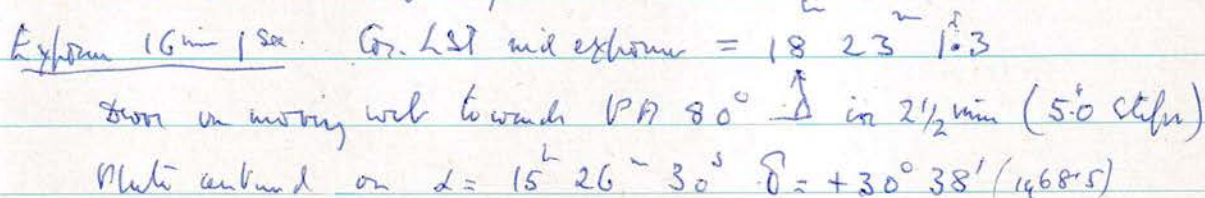 Exposure 16 min 1 sec. Cor. LST mid exposure = 18h 23m 1s.3
moving web towards PA 80° in 2½ min (5.0
Plate centred on α = 15h 26m 30s δ = +30° 38' (1968.5)